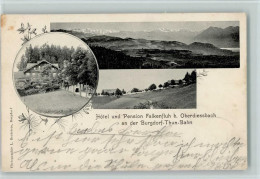 Hôtel und Pension Falkenfluh b. Oberdiessbach
an der Burgdorf-Thun-Bahn